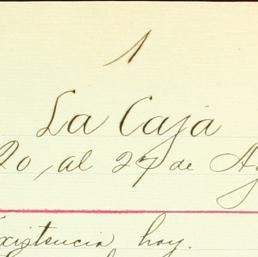 1
La Caja
20, al 27 de Ag
xistencia hoy.